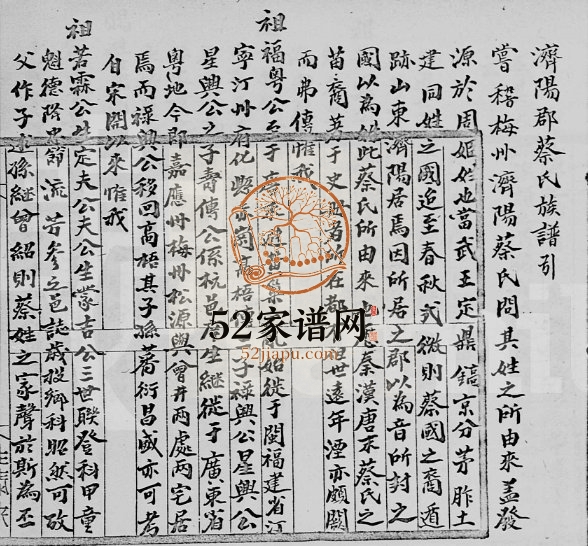 濟陽郡蔡氏族譜引
嘗稽梅州濟陽蔡氏問其姓之所由來盖發
源於周姬姓也當武王定鼎鎬京分茅胙土
建同姓之國迨至春秋式微則蔡國之裔遁
跡山東濟陽居焉因所居之郡以為音所封之
國以為姓此蔡氏所由來也秦漢唐宋蔡氏之
苗裔其于史所在都世遠年湮亦頗闕
而弗傳惟我
祖福粤公避始徙于閩福建省汀
寧汀州府化縣子祿興公星興公
星興公之子壽傳公係杭生繼徙于廣東省
粤地今郡嘉應州梅州松源興會井兩處兩宅居
焉而祿公移回高梧其子孫蕃衍昌盛亦可考
自宋閩以來惟我
祖若霖公生定夫公夫公生蒙吉公三世聯登科甲童
魁德節流芳參之邑誌歲投鄉科昭然可攷
父作子孫繼曾紹則蔡姓之家聲於斯為丕
52家谱网
52jiapu.com